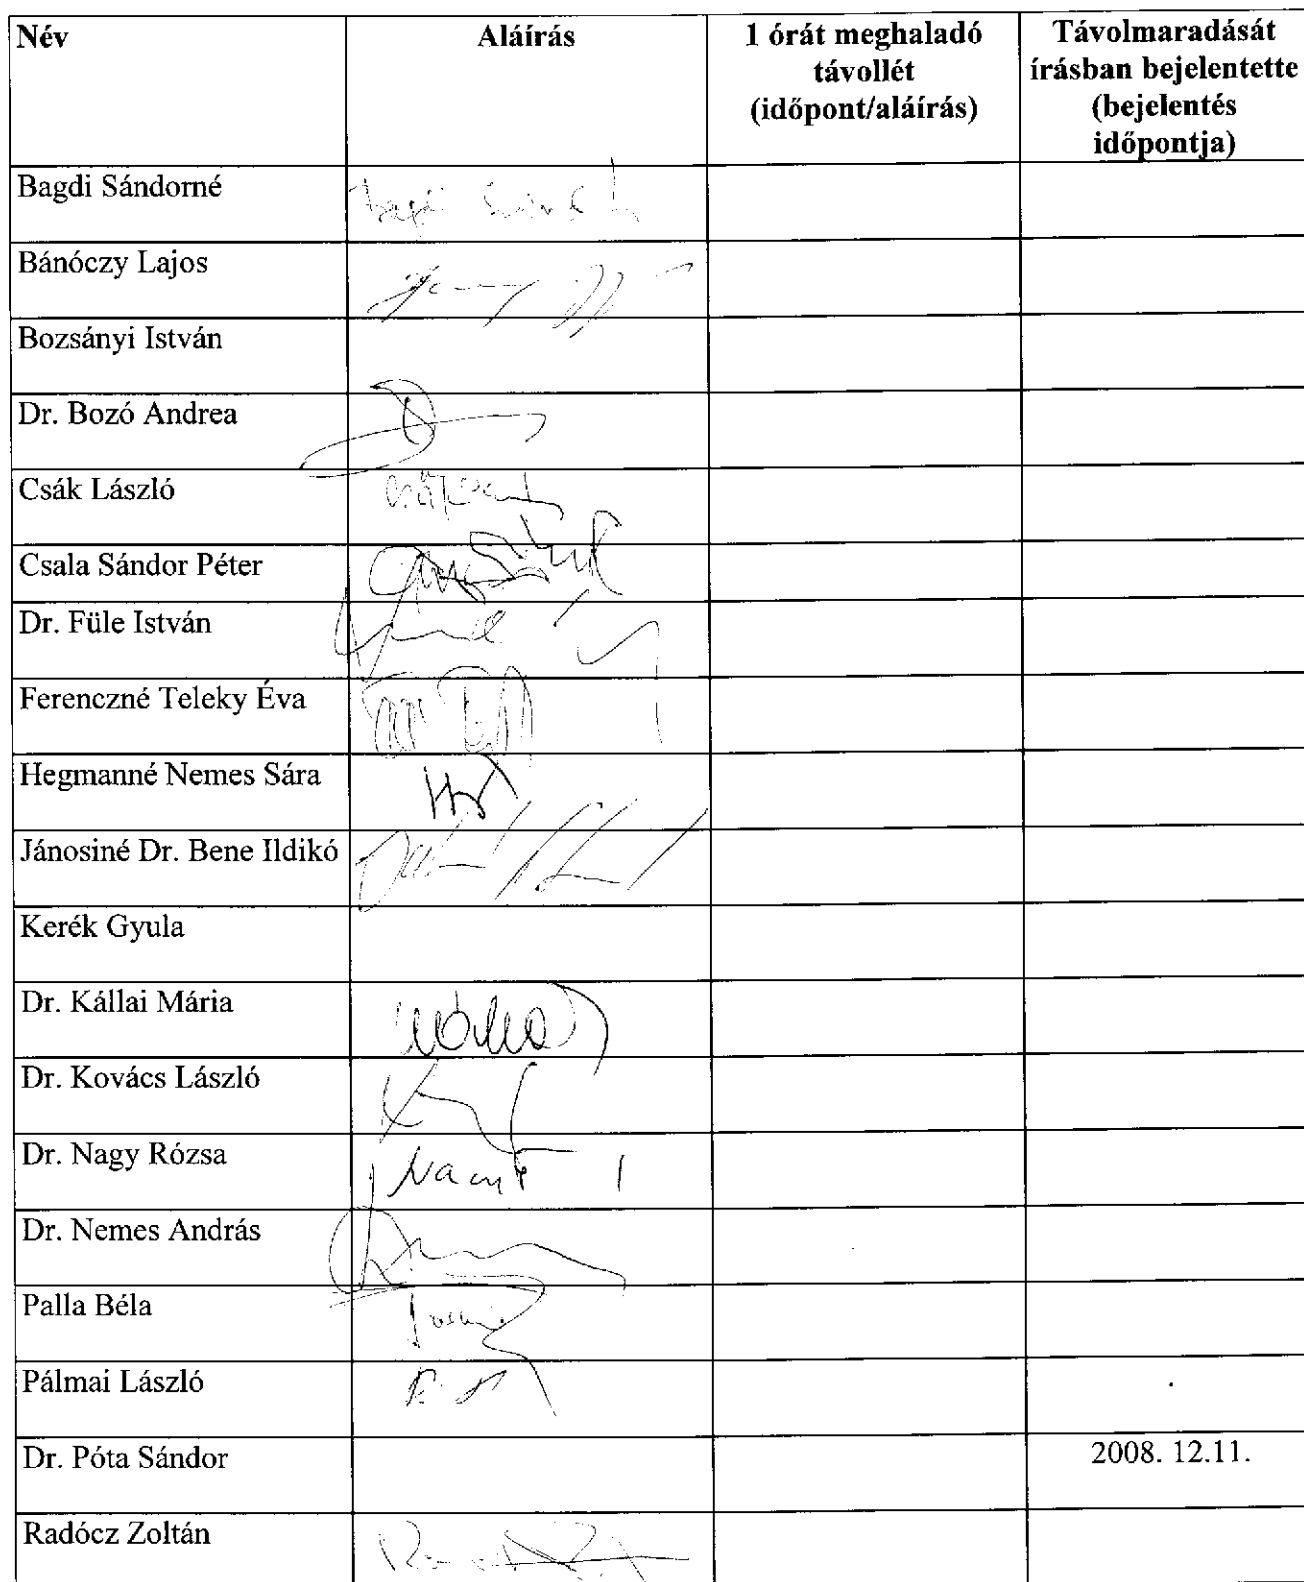 Név Aláírás 1 órát meghaladó távollét (időpont/aláírás) Távolmaradását írásban bejelentette (bejelentés időpontja)
Bagdi Sándorné
Bánóczy Lajos
Bozsányi István
Dr. Bozó Andrea
Csák László
Csala Sándor Péter
Dr. Füle István
Ferenczné Teleky Éva
Hegmanné Nemes Sára
Jánosiné Dr. Bene Ildikó
Kerék Gyula
Dr. Kállai Mária
Dr. Kovács László
Dr. Nagy Rózsa
Dr. Nemes András
Palla Béla
Pálmai László
Dr. Póta Sándor 2008. 12.11.
Radócz Zoltán